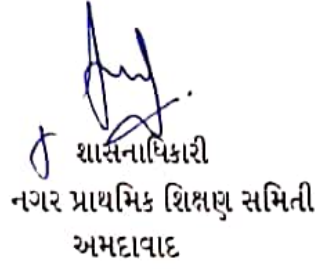 શાસનાધિકારી
નગર પ્રાથમિક શિક્ષણ સમિતી
અમદાવાદ